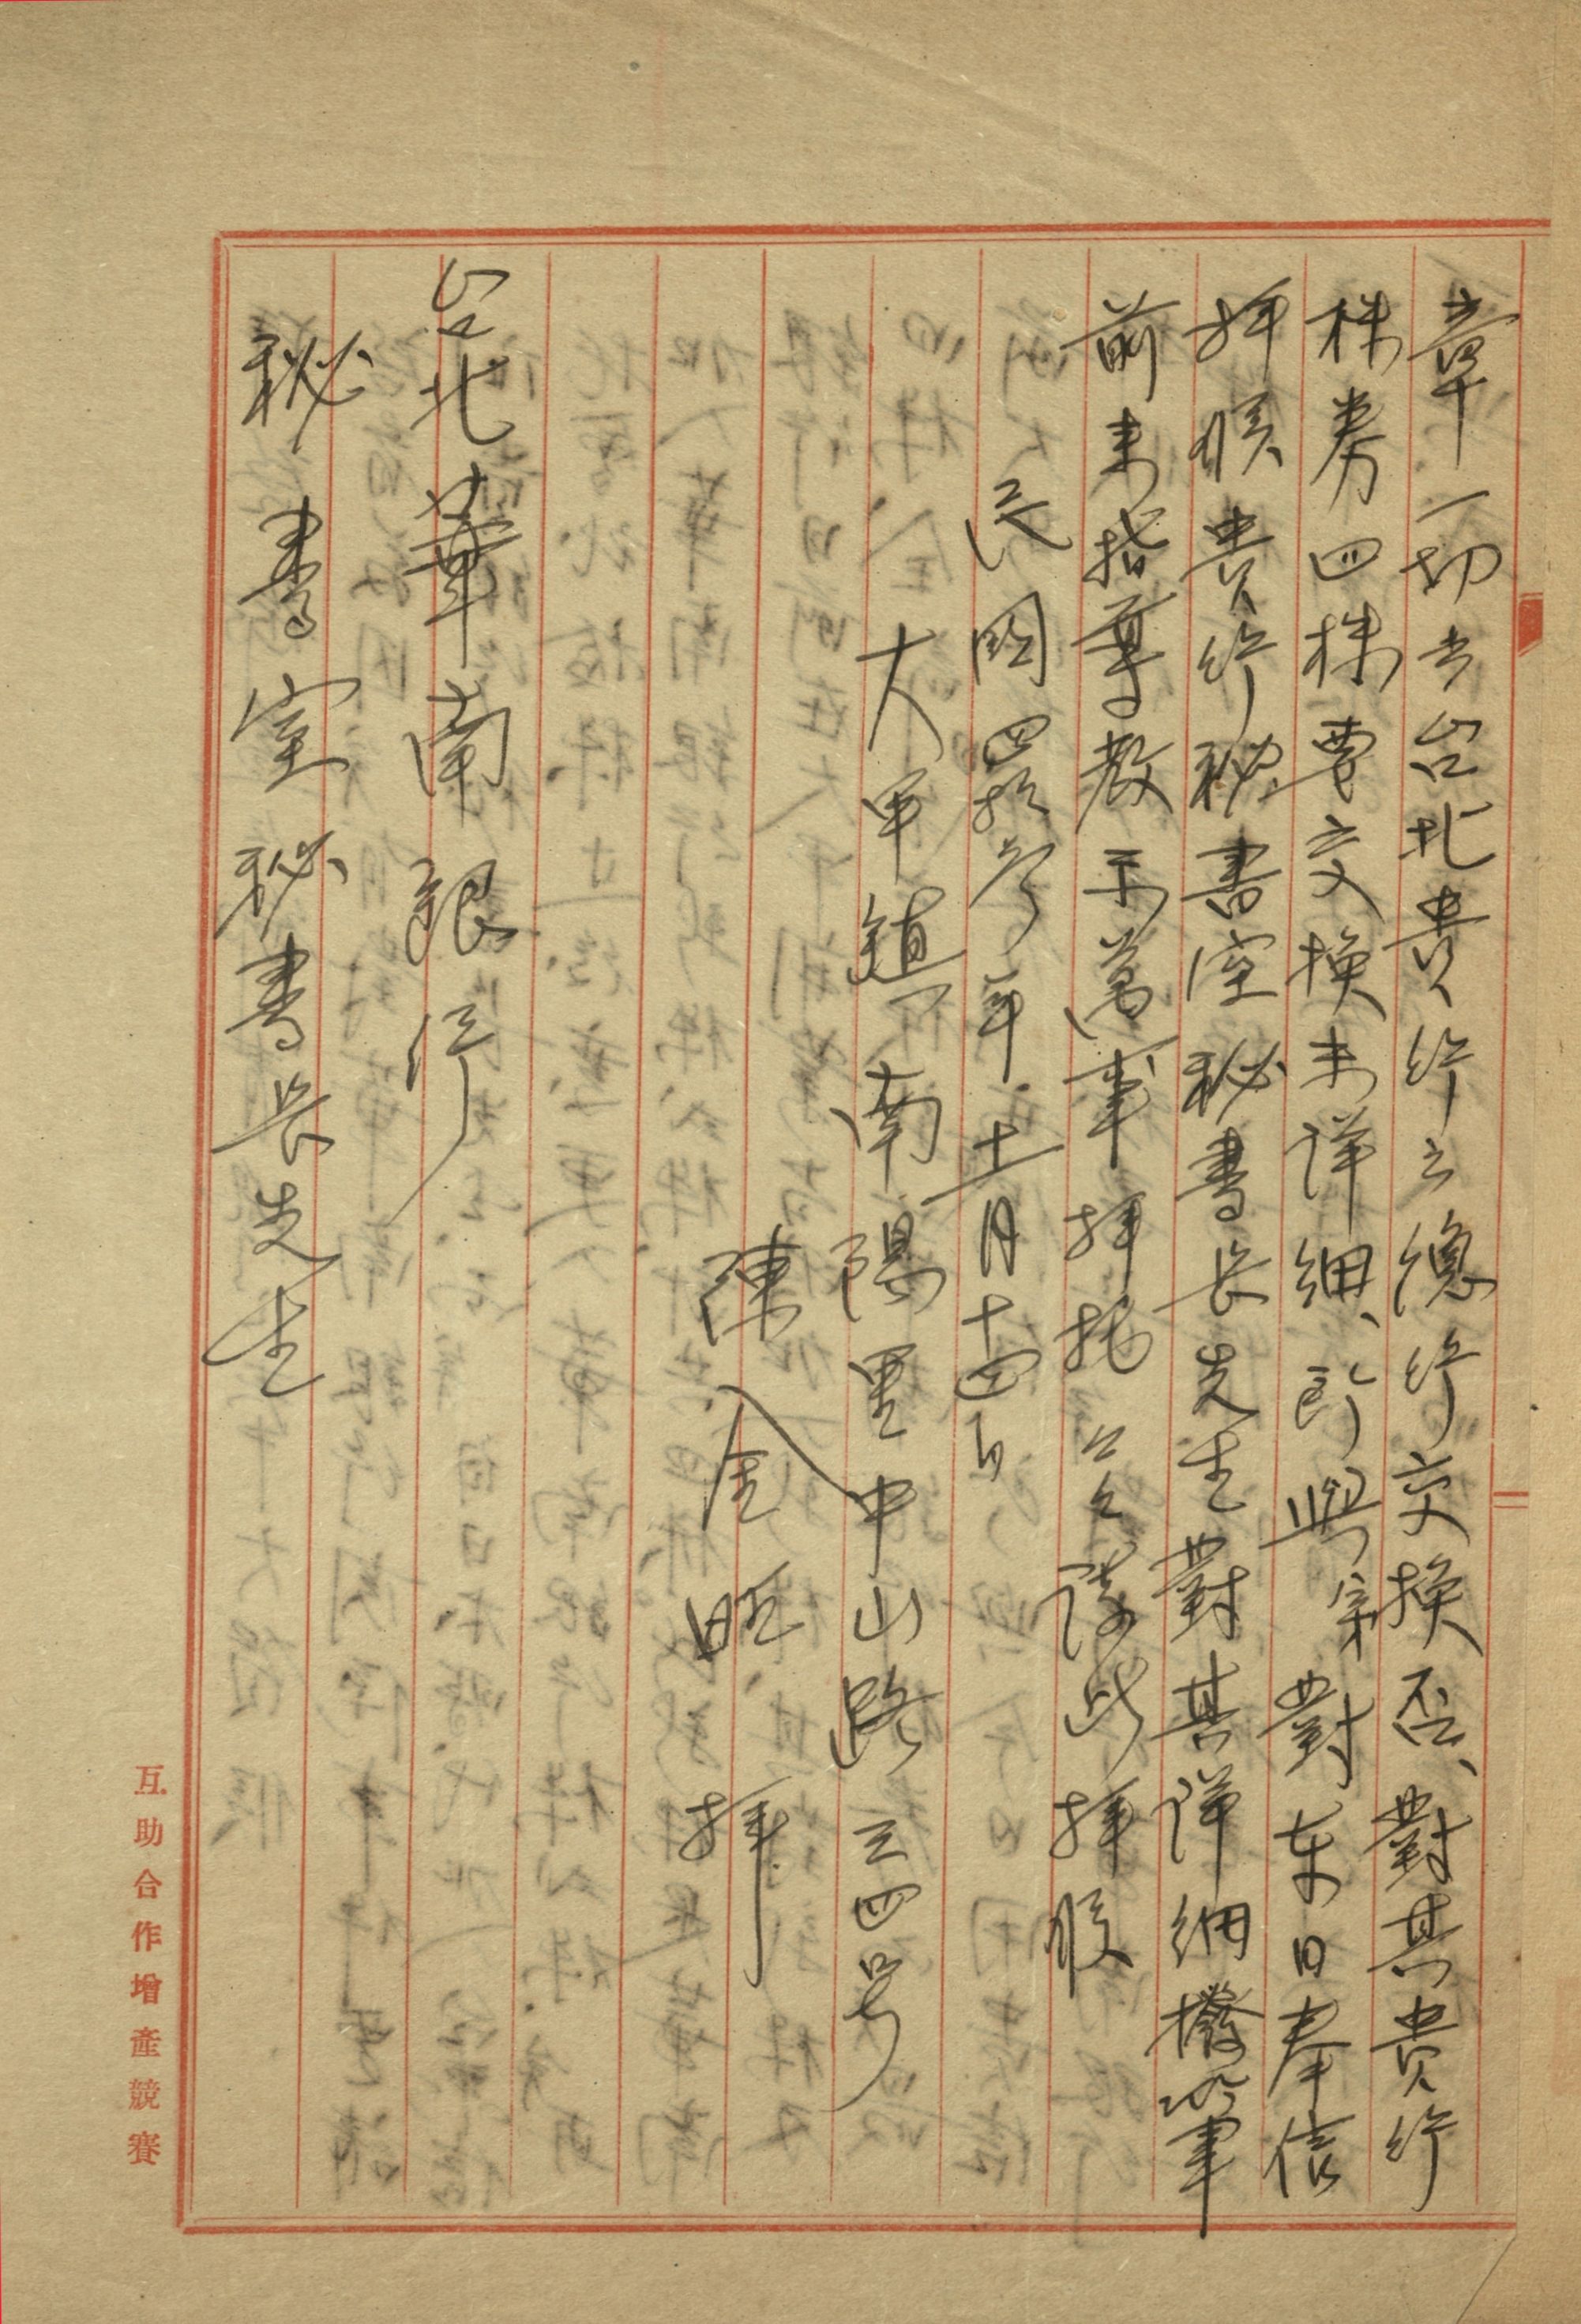 章一切去台北貴行之總行交換否、對其貴行
株券四株要交換未詳細、所與弟對本日奉信
拜候貴行秘書室秘書長先生對其詳細撥筆
前來指尊教示萬事拜托々々謹此拜候
民國四拾叁年十一月十四日
大甲鎮南陽里中山路三四号
陳金旺拜
台北華南銀行
秘書室秘書長先生
互助合作增產競賽